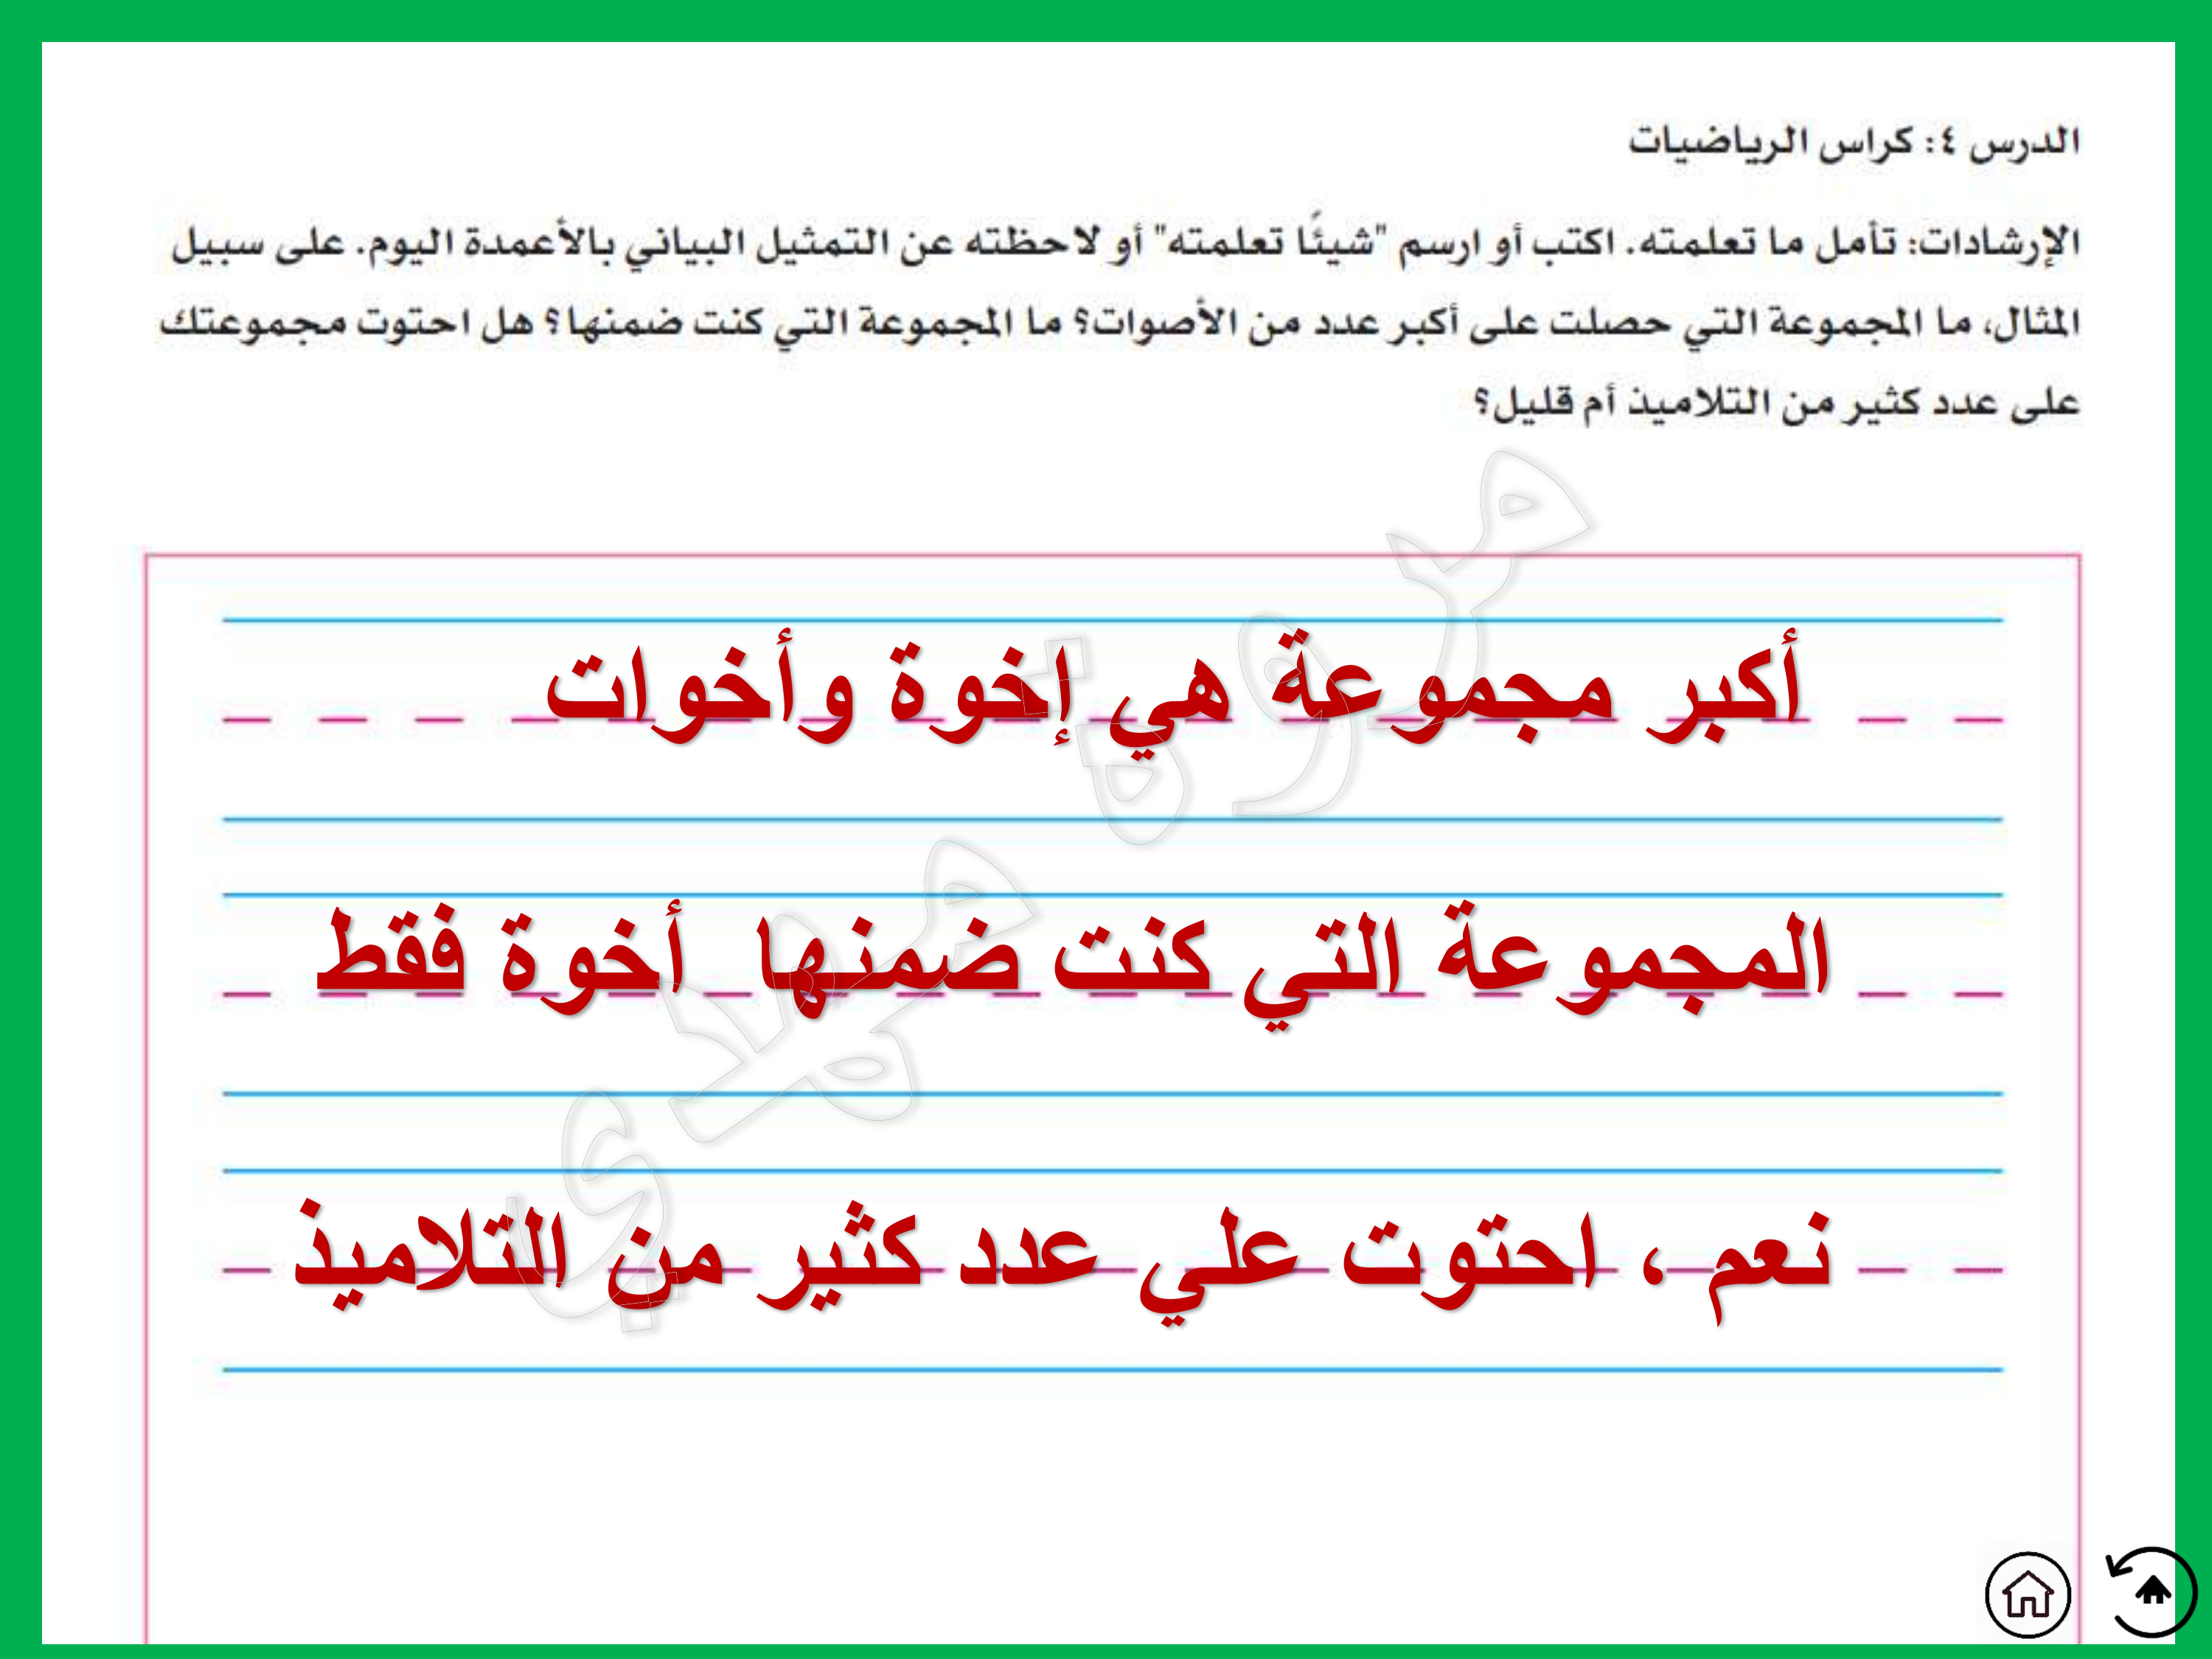 الدرس ٤: كراس الرياضيات
الإرشادات: تأمل ما تعلمته. اكتب أو ارسم "شيئًا تعلمته" أو لاحظته عن التمثيل البياني بالأعمدة اليوم. على سبيل
المثال، ما المجموعة التي حصلت على أكبر عدد من الأصوات؟ ما المجموعة التي كنت ضمنها؟ هل احتوت مجموعتك
على عدد كثير من التلاميذ أم قليل؟
أكبر مجموعة هي إخوة وأخوات
المجموعة التي كنت ضمنها أخوة فقط
نعم ، احتوت علي عدد كثير من التلاميذ
مروة مهدي